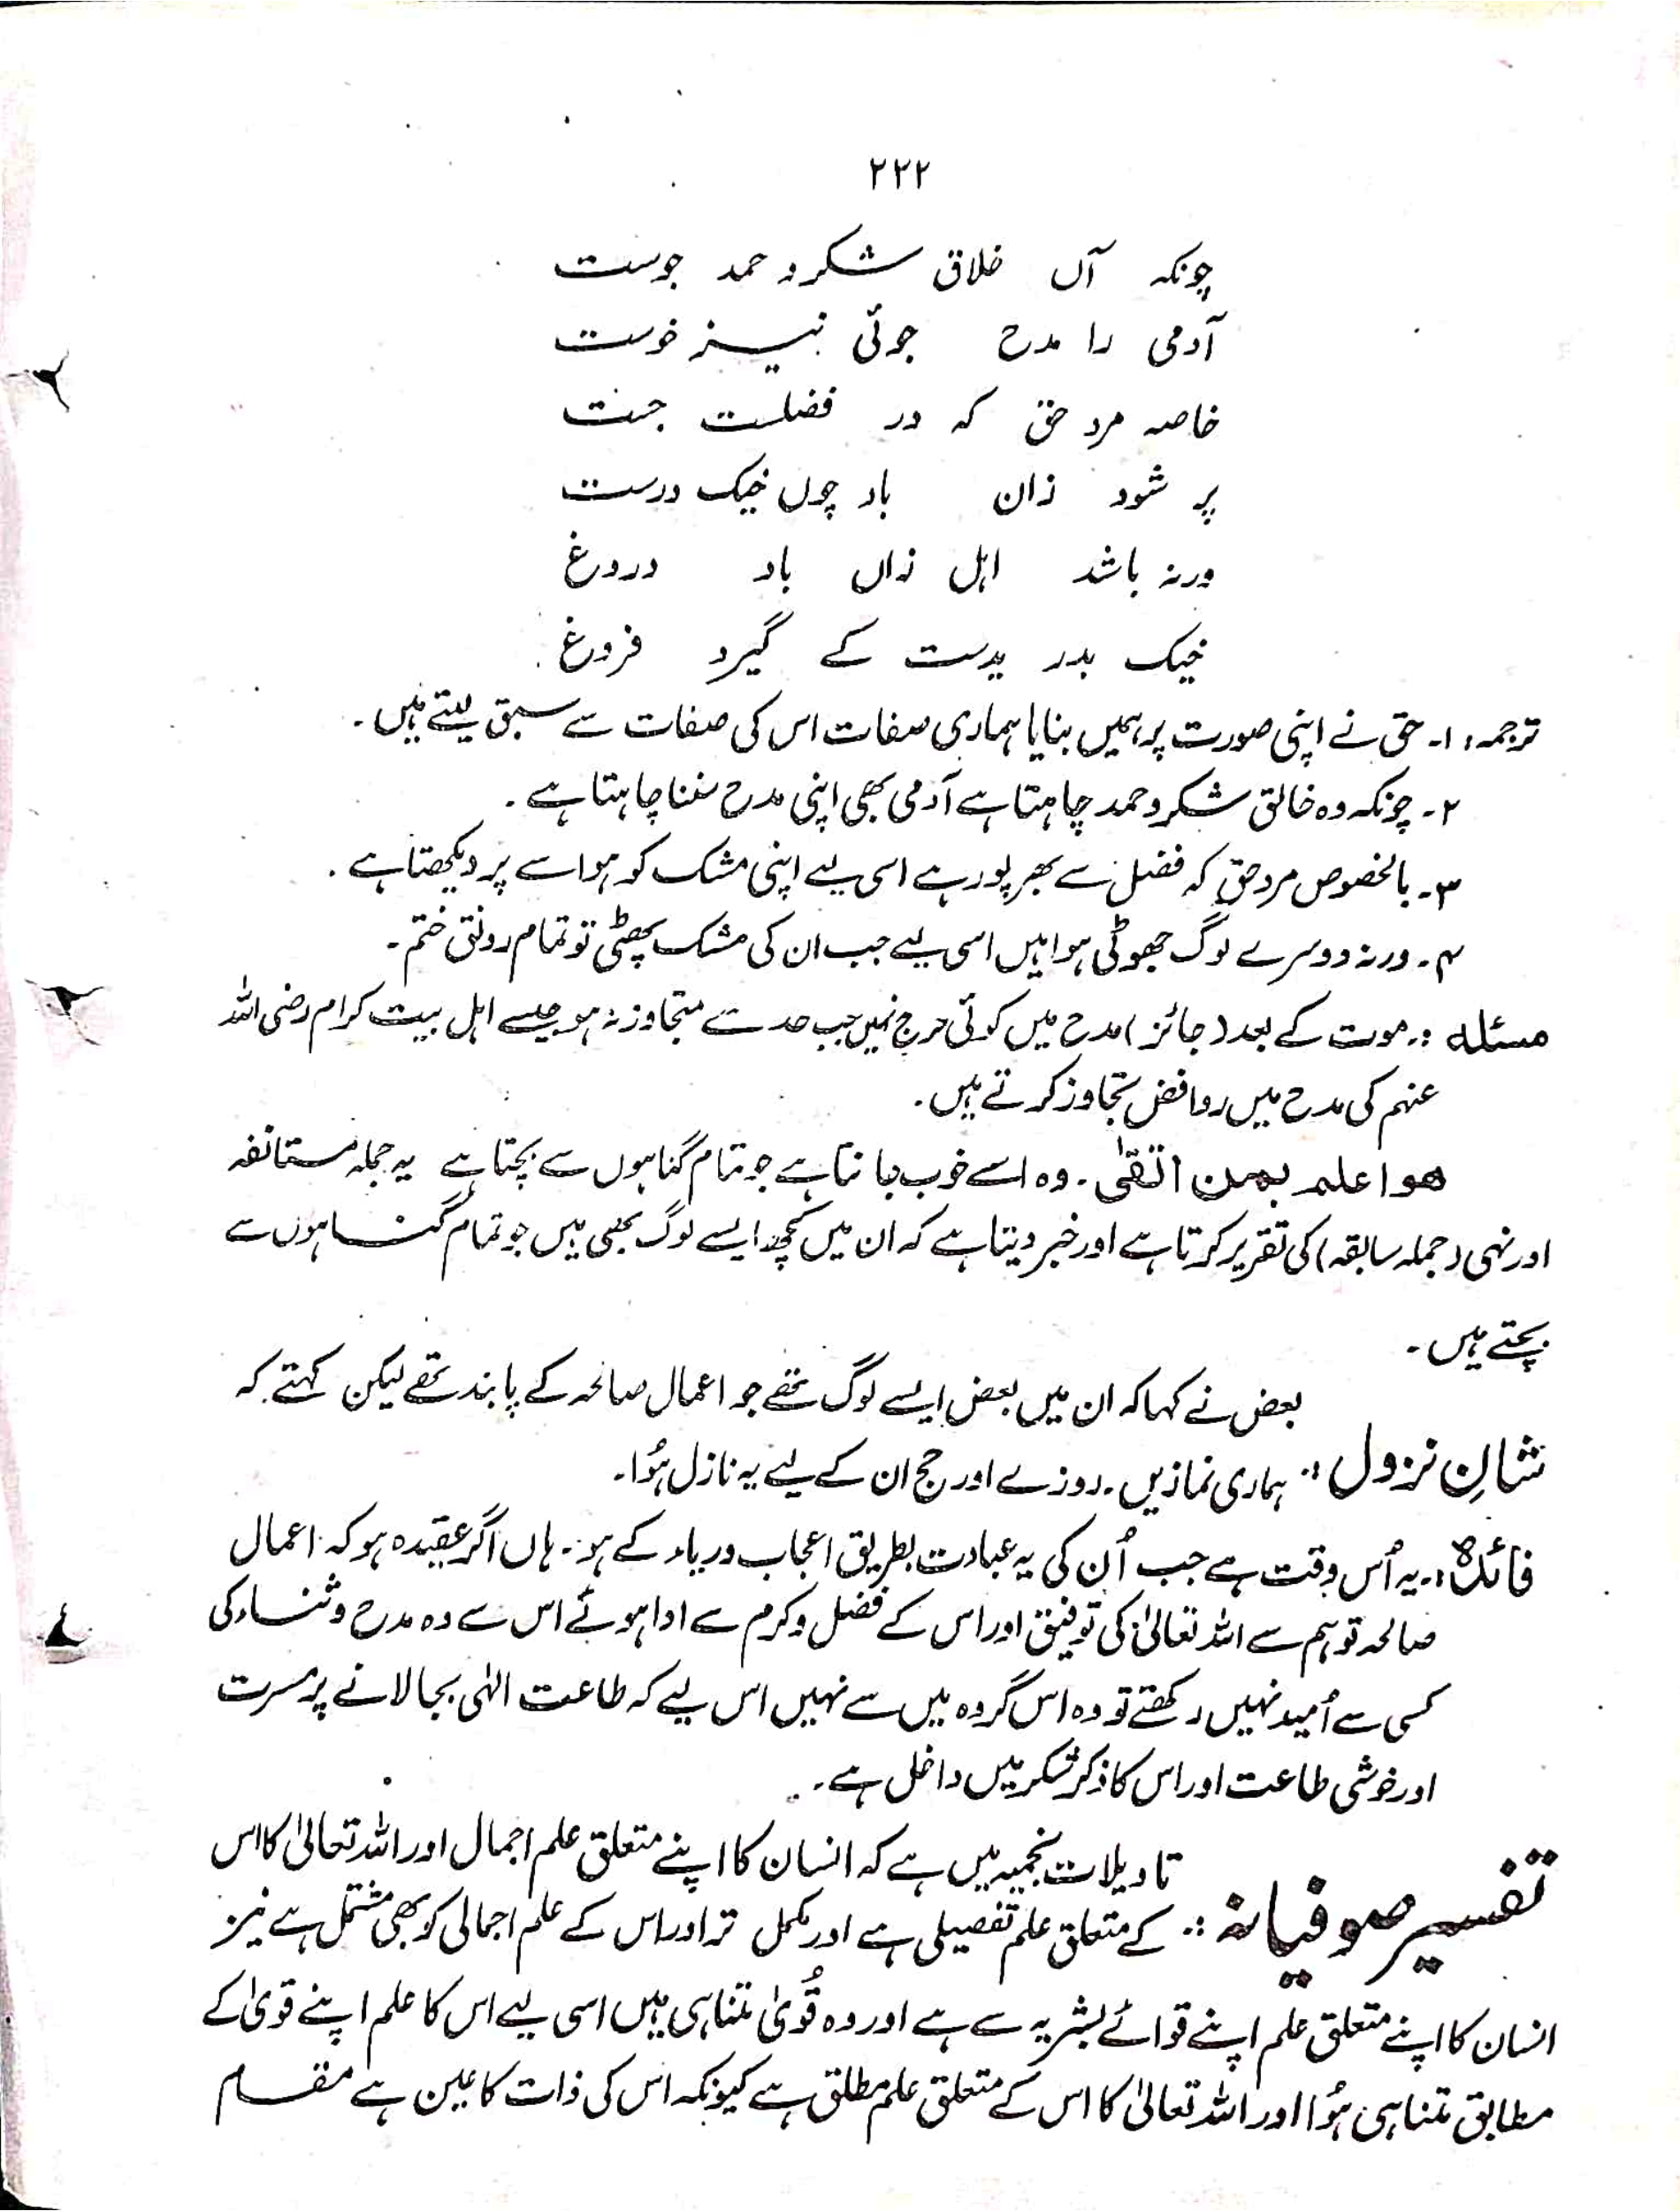 ۲۲۲
چونکہ آں خلاق شکر و حمد جوست
آدمی را مدح جوئی نیز خوست
خاصہ مرد حق کہ در فضلت جست
پر شود زان باد چوں خیک درست
ورنہ باشد اہل زاں باد دروغ
خیک بدر یدست کے گیرد فروغ
ترجمہ: ۱۔ حق نے اپنی صورت پر ہمیں بنایا ہماری صفات اس کی صفات سے سبق لیتے ہیں۔
۲۔ چونکہ وہ خالق شکر و حمد چاہتا ہے آدمی بھی اپنی مدح سننا چاہتا ہے۔
۳۔ بالخصوص مرد حق کہ فضل سے بھرپور ہے اسی لیے اپنی مشک کو ہوا سے پر دیکھتا ہے۔
۴۔ ورنہ دوسرے لوگ جھوٹی ہوا ہیں اسی لیے جب ان کی مشک پھٹی تو تمام رونق ختم۔
مسئلہ :۔ موت کے بعد (جائز) مدح میں کوئی حرج نہیں جب حد سے متجاوز نہ ہو جیسے اہل بیت کرام رضی اللہ
عنہم کی مدح میں روافض تجاوز کرتے ہیں۔
ھو اعلم بمن اتقیٰ۔ وہ اسے خوب جانتا ہے جو تمام گناہوں سے بچتا ہے یہ جملہ مستانفہ
اور نہی (جملہ سابقہ) کی تقریر کرتا ہے اور خبر دیتا ہے کہ ان میں کچھ ایسے لوگ بھی ہیں جو تمام گناہوں سے
بچتے ہیں۔
بعض نے کہا کہ ان میں بعض ایسے لوگ تھے جو اعمال صالحہ کے پابند تھے لیکن کہتے کہ
شانِ نزول :۔ ہماری نمازیں۔ روزے اور حج ان کے لیے یہ نازل ہُوا۔
فائدہ :۔ یہ اُس وقت ہے جب اُن کی یہ عبادت بطریق اعجاب و ریاء کے ہو۔ ہاں اگر عقیدہ ہو کہ اعمال
صالحہ تو ہم سے اللہ تعالیٰ کی توفیق اور اس کے فضل و کرم سے ادا ہوئے اس سے وہ مدح و ثناء کی
کسی سے اُمید نہیں رکھتے تو وہ اس گروہ میں سے نہیں اس لیے کہ طاعت الٰہی بجا لانے پر مسرت
اور خوشی طاعت اور اس کا ذکر شکر میں داخل ہے۔
تاویلات نجمیہ میں ہے کہ انسان کا اپنے متعلق علم اجمال اور اللہ تعالیٰ کا اس
تفسیر صوفیانہ :۔ کے متعلق علم تفصیلی ہے اور مکمل تر اور اس کے علم اجمالی کو بھی مشتمل ہے نیز
انسان کا اپنے متعلق علم اپنے قوائے بشریہ سے ہے اور وہ قُویٰ متناہی ہیں اسی لیے اس کا علم اپنے قویٰ کے
مطابق متناہی ہُوا اور اللہ تعالیٰ کا اس کے متعلق علم مطلق ہے کیونکہ اس کی ذات کا عین ہے مقام